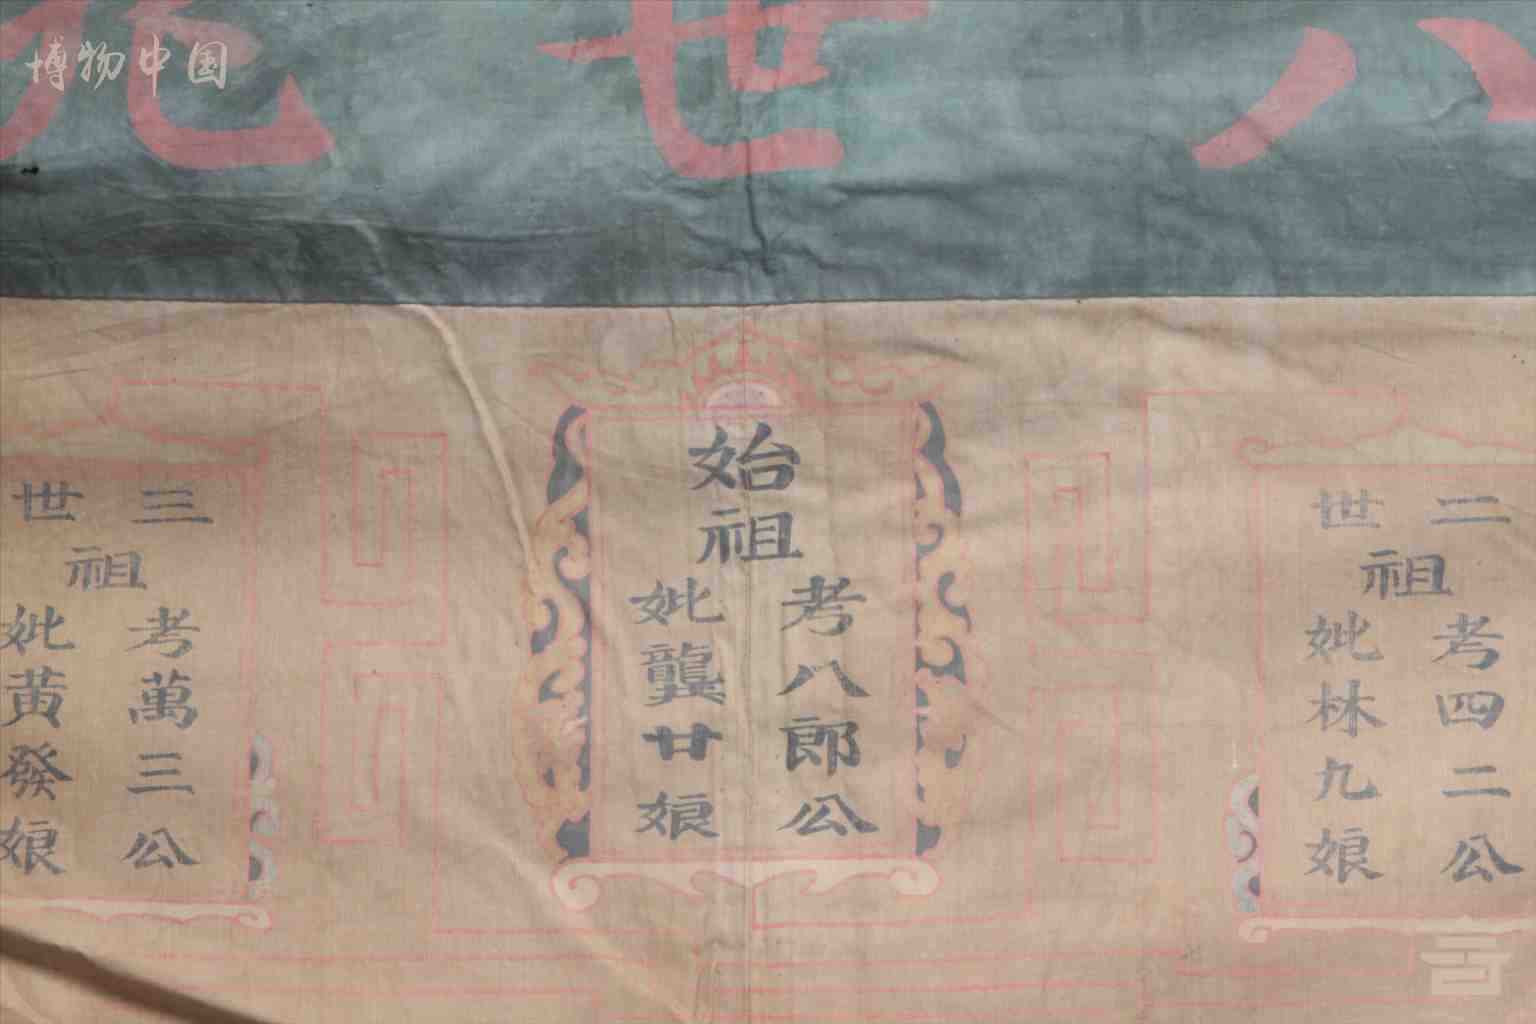 博物中国
世
二世
祖
考四二公
妣林九娘
始祖
考八郎公
妣龔廿娘
三世
祖
考萬三公
妣黄發娘